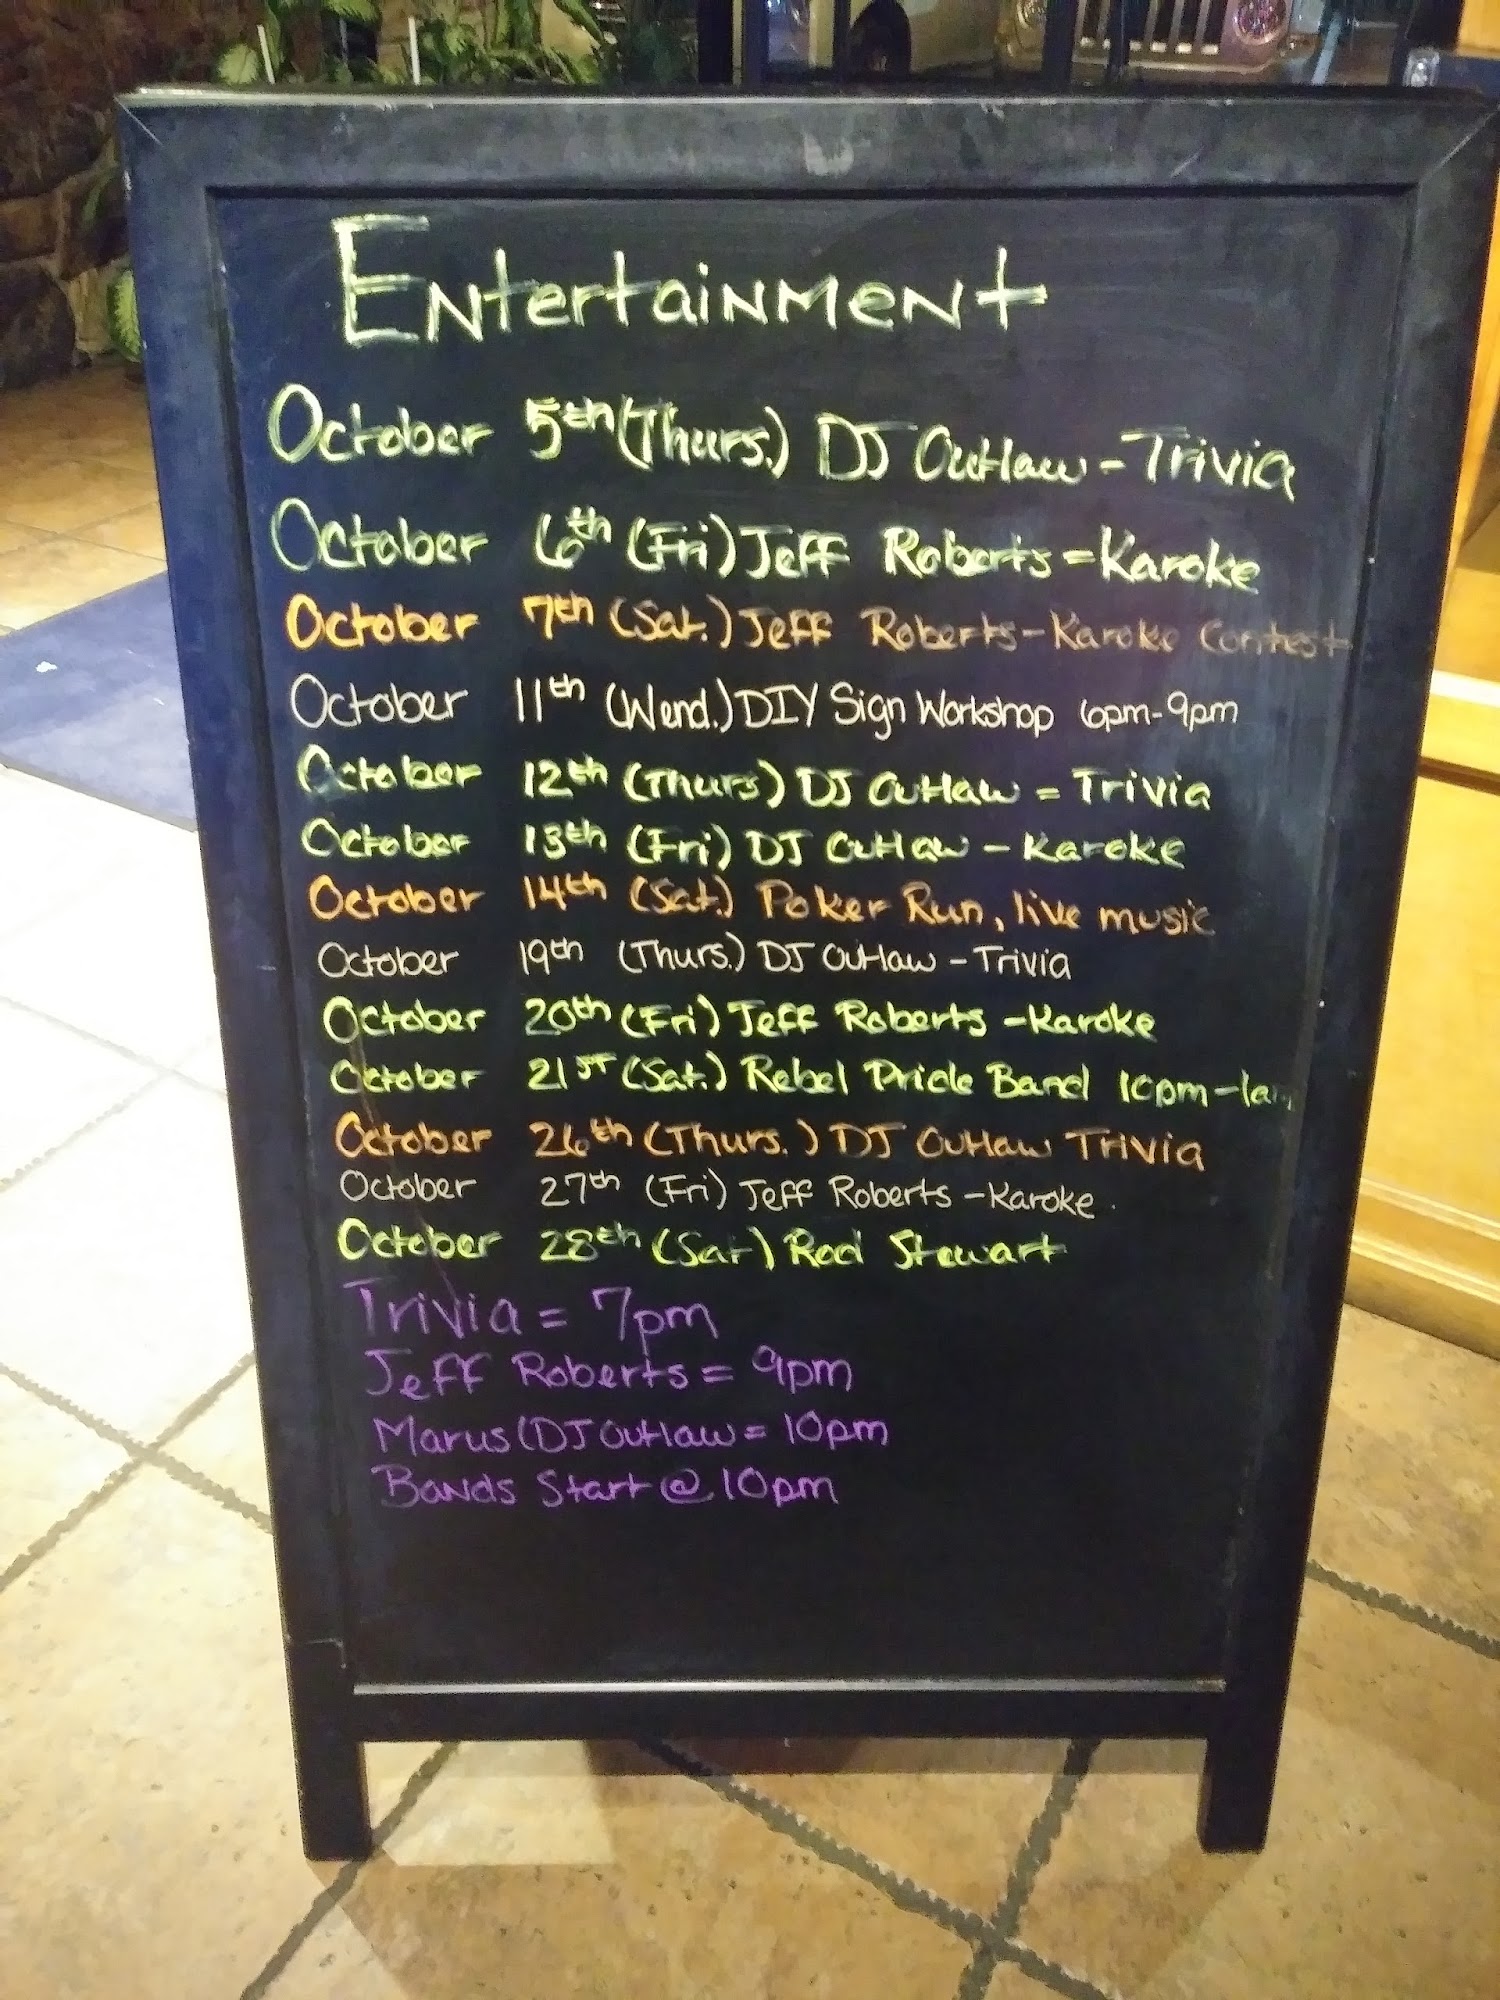 Entertainment
October 5th (Thurs.) DJ Outlaw - Trivia
October 6th (Fri) Jeff Roberts = Karoke
October 7th (Sat.) Jeff Roberts - Karoke Contest
October 11th (Wend.) DIY Sign Workshop 6pm-9pm
October 12th (Thurs) DJ Outlaw = Trivia
October 13th (Fri) DJ Outlaw - Karoke
October 14th (Sat.) Poker Run, live music
October 19th (Thurs.) DJ Outlaw - Trivia
October 20th (Fri) Jeff Roberts - Karoke
October 21st (Sat.) Rebel Pride Band 10pm-1am
October 26th (Thurs.) DJ Outlaw Trivia
October 27th (Fri) Jeff Roberts - Karoke.
October 28th (Sat) Rod Stewart
Trivia = 7pm
Jeff Roberts = 9pm
Marus (DJ Outlaw = 10pm
Bands Start @ 10pm